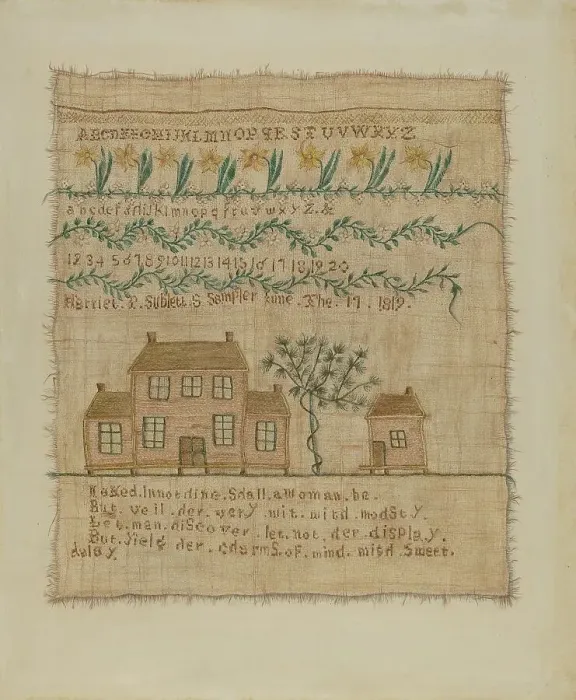 ABCDEFGHIJKLMNOPQRSTUVWXYZ
abcdefghijklmnopqrstuvwxyz.&
12 3 4 5 6 7 8 9 10 11 12 13 14 15 16 17 18 19 20
Harriet. P. Sublett. S Sampler June. The. 17. 1819.
Naked. In not ding. Sdall. a Woman. be.
But. veil. der. very wit. witd modSty.
Let. man. diScover. let. not. der. display.
But. yield der. cdarmS. of. mind. witd Sweet.
delay.